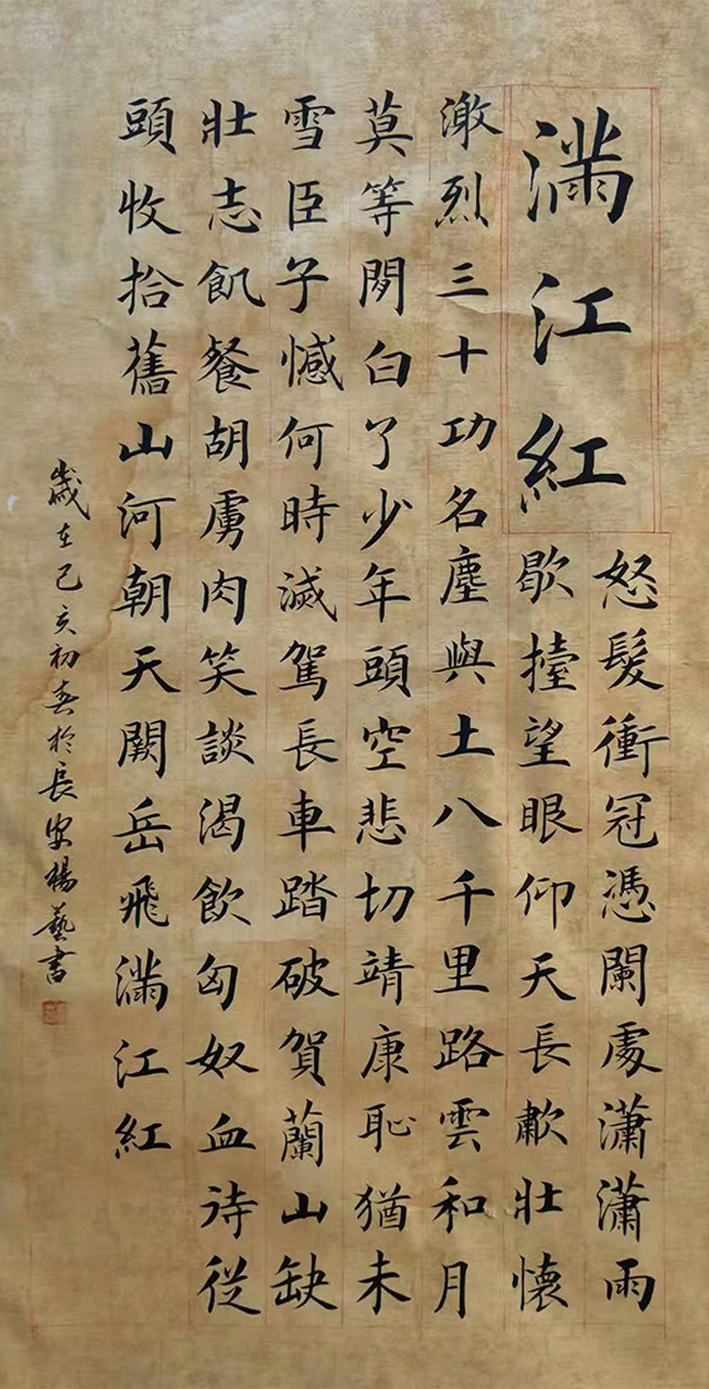 滿江紅
怒髮衝冠憑闌處瀟瀟雨
歇擡望眼仰天長歗壯懷
激烈三十功名塵與土八千里路雲和月
莫等閒白了少年頭空悲切靖康恥猶未
雪臣子憾何時滅駕長車踏破賀蘭山缺
壯志飢餐胡虜肉笑談渴飲匈奴血待從
頭收拾舊山河朝天闕岳飛滿江紅
歲在己亥初春於長安楊藝書